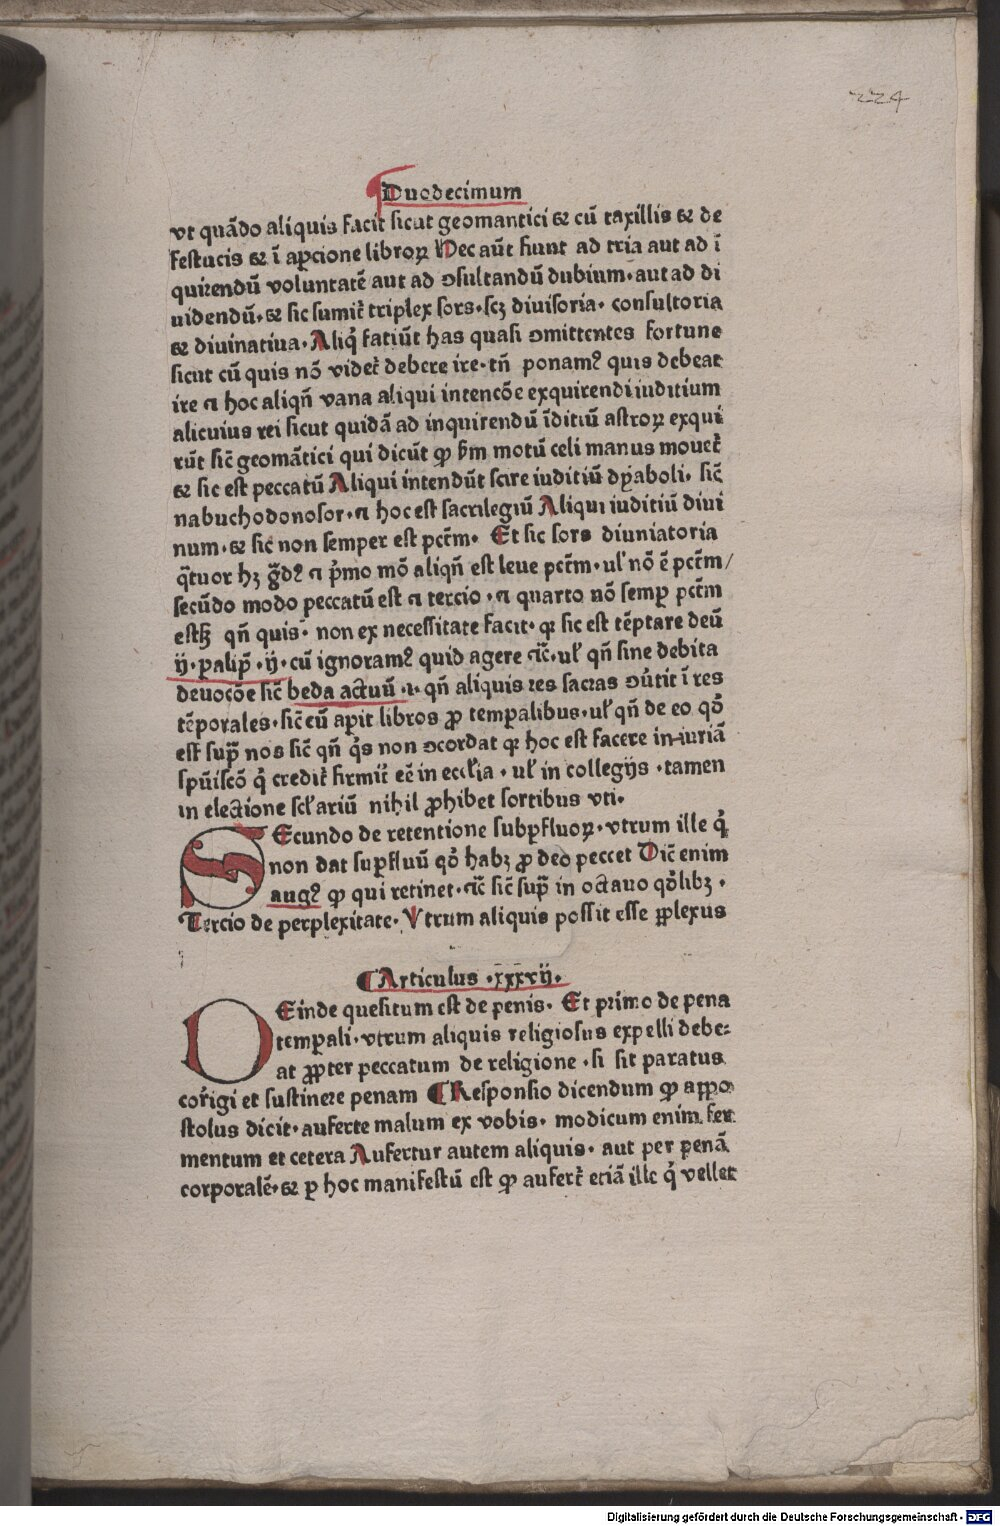 224
Duodecimum
vt quãdo aliquis facit sicut geomantici ⁊ cũ taxillis ⁊ de
festucis ⁊ ĩ apcione libroꝝ Hec aũt fiunt ad tria aut ad ĩ
quirendũ voluntatẽ aut ad ꝯsultandũ dubium· aut ad di
uidendũ· ⁊ sic sumit᷑ triplex sors· scꝫ diuisoria· consultoria
⁊ diuinatiua· Aliq̃ faciũt has quasi ꝯmittentes fortune
sicut cũ quis nõ videt᷑ debere ire· tñ ponamꝰ quis debeat
ire ⁊ hoc aliqñ vana aliqui intencõe exquirendi iuditium
alicuius rei sicut quidã ad inquirendũ ĩditiũ astroꝝ exqui
rũt sic̃ geomãtici qui dicũt ꝙ ẜm motũ celi manus mouet᷑
⁊ sic est peccatũ Aliqui intendũt scire iuditiũ dyaboli· sic̃
nabuchodonosor· ⁊ hoc est sacrilegiũ Aliqui iuditiũ diui
num· ⁊ sic̃ non semper est pct̃m· Et sic sors diuniatoria
q̃tuor hꝫ g̃dꝰ ⁊ p̃mo mõ aliqñ est leue pct̃m· ul̛ nõ ẽ pct̃m/
secũdo modo peccatũ est ⁊ tercio· ⁊ quarto nõ semp̲ pct̃m
est qñ quis· non ex necessitate facit· ꝙ sic est tẽptare deũ
ij· palip̃· ij· cũ ignoramꝰ quid agere ⁊c̃· ul̛ qñ sine debita
deuocõe sic̃ beda actuũ· i· qñ aliquis res sacras ꝯũtit ĩ res
tẽporales· sic̃ cũ apit libros ꝓ temp̲alibus· ul̛ qñ de eo qd̛
est sup̃ nos sic̃ qñ q̃s non ꝯcordat ꝙ hoc est facere in-iuriã
spũiscõ q̃ credit᷑ firmit̃ eẽ in eccl̛ia· ul̛ in collegijs· tamen
in electione scl̛ariũ nihil ꝓhibet sortibus vti·
SEcundo de retentione subp̲fluoꝝ· vtrum ille q̃
non dat sup̲fluũ qd̛ habꝫ ꝓ deo peccet Dic̃ enim
augꝰ ꝙ qui retinet· ⁊c̃ sic̃ sup̃ in octauo qd̛libꝫ·
Tercio de perplexitate· Vtrum aliquis possit esse p̲plexus
Articulus· xxxvij·
DEinde quesitum est de penis· Et primo de pena
temp̲ali· vtrum aliquis religiosus expelli debe⸗
at ꝓpter peccatum de religione· si sit paratus
corrigi et sustinere penam Responsio dicendum ꝙ appo
stolus dicit· auferte malum ex vobis· modicum enim fer
mentum et cetera Aufertur autem aliquis· aut per penã
corporalẽ· ⁊ p̲ hoc manifestũ est ꝙ aufert᷑ etiã ille q̃ vellet
Digitalisierung gefördert durch die Deutsche Forschungsgemeinschaft - DFG